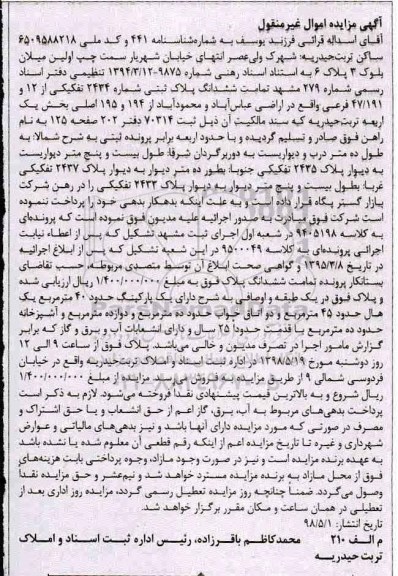 آگهی مزایده اموال غیرمنقول
آقای اسداله قرائی فرزند یوسف به شماره شناسنامه ۴۴۱ و کد ملی ۶۵۰۹۵۸۸۲۱۸
ساکن تربت‌حیدریه: شهرک ولی‌عصر انتهای خیابان شهریار سمت چپ اولین میلان
بلوک ۳ پلاک ۶ به استناد اسناد رهنی شماره ۹۸۷۵-۱۳۹۴/۳/۱۲ تنظیمی دفتر اسناد
رسمی شماره ۲۷۹ مشهد تمامت ششدانگ پلاک ثبتی شماره ۲۴۳۴ تفکیکی از ۱۲ و
۴۷/۱۹۱ فرعی واقع در اراضی عباس‌آباد و محمودآباد از ۱۹۴ و ۱۹۵ اصلی بخش یک
اربعه تربت‌حیدریه که سند مالکیت آن ذیل ثبت ۷۰۳۱۴ دفتر ۲۰۲ صفحه ۱۲۵ به نام
راهن فوق صادر و تسلیم گردیده و با حدود اربعه برابر پرونده ثبتی به شرح شمالا: به
طول ده متر درب و دیواریست به دوربرگردان شرقا: طول بیست و پنج متر دیواریست
به دیوار پلاک ۲۴۳۵ تفکیکی جنوبا: بطور ده متر دیوار به دیوار پلاک ۲۴۳۷ تفکیکی
غربا: بطول بیست و پنج متر دیوار به دیوار پلاک ۲۴۳۳ تفکیکی را در رهن شرکت
پازار گستر پگاه قرار داده است و به علت اینکه بدهکار بدهی خود را پرداخت ننموده
است شرکت فوق مبادرت به صدور اجرائیه علیه مدیون فوق نموده است که پرونده‌ای
به کلاسه ۹۴۰۵۱۹۸ در شعبه اول اجرای ثبت مشهد تشکیل که پس از اعطاء نیابت
اجرائی پرونده‌ای به کلاسه ۹۵۰۰۰۴۹ در این شعبه تشکیل که پس از ابلاغ اجرائیه
در تاریخ ۱۳۹۵/۳/۸ و گواهی صحت ابلاغ آن توسط متصدی مربوطه، حسب تقاضای
بستانکار پرونده تمامت ششدانگ پلاک فوق به مبلغ ۱/۴۰۰/۰۰۰/۰۰۰ ریال ارزیابی شده
و پلاک فوق در یک طبقه و اوصافی به شرح دارای یک پارکینگ حدود ۴۰ مترمربع یک
هال حدود ۴۵ مترمربع و دو اتاق خواب حدود ده مترمربع و دوازده مترمربع و آشپزخانه
حدود ده مترمربع با قدمت حدودا ۲۵ سال و دارای انشعابات آب و برق و گاز که برابر
گزارش مامور اجرا در تصرف مدیون و خالی می‌باشد. پلاک فوق از ساعت ۹ الی ۱۲
روز دوشنبه مورخ ۱۳۹۸/۵/۱۹ در اداره ثبت اسناد و املاک تربت‌حیدریه واقع در خیابان
فردوسی شمالی ۹ از طریق مزایده به فروش می‌رسد. مزایده از مبلغ ۱/۴۰۰/۰۰۰/۰۰۰
ریال شروع و به بالاترین قیمت پیشنهادی نقداً فروخته می‌شود. لازم به ذکر است
پرداخت بدهی‌های مربوط به آب، برق، گاز اعم از حق انشعاب و یا حق اشتراک و
مصرف در صورتی که مورد مزایده دارای آنها باشد و نیز بدهی‌های مالیاتی و عوارض
شهرداری و غیره تا تاریخ مزایده اعم از اینکه رقم قطعی آن معلوم شده یا نشده باشد
به عهده برنده مزایده است و نیز در صورت وجود مازاد، وجوه پرداختی بابت هزینه‌های
فوق از محل مازاد به برنده مزایده مسترد خواهد شد و نیم‌عشر و حق مزایده نقداً
وصول می‌گردد. ضمناً چنانچه روز مزایده تعطیل رسمی گردد، مزایده روز اداری بعد از
تعطیلی در همان ساعت و مکان مقرر برگزار خواهد شد.
تاریخ انتشار: ۹۸/۵/۱
م الف ۲۱۰ محمدکاظم باقرزاده، رئیس اداره ثبت اسناد و املاک
تربت حیدریه